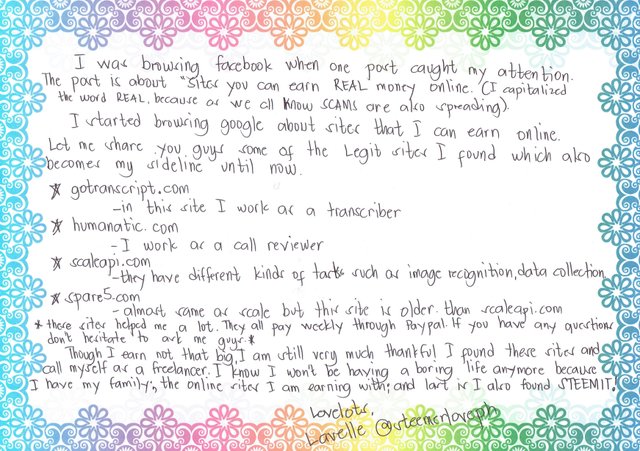 I was browsing facebook when one post caught my attention.
The post is about "sites you can earn REAL money online. (I capitalized
the word REAL, because as we all know SCAMS are also spreading).
I started browsing google about sites that I can earn online.
Let me share you guys some of the Legit sites I found which also
becomes my sideline until now.
* gotranscript.com
-in this site I work as a transcriber
* humanatic.com
-I work as a call reviewer
* scaleapi.com
-they have different kinds of tasks such as image recognition, data collection
* spare5.com
-almost same as scale but this site is older than scaleapi.com
*these sites helped me a lot. They all pay weekly through Paypal. If you have any questions
don't hesitate to ask me guys.*
Though I earn not that big, I am still very much thankful I found these sites and
call myself as a freelancer. I know I won't be having a boring life anymore because
I have my family, the online sites I am earning with; and last is I also found STEEMIT.
Lovelots,
Lavelle @steemerloveph